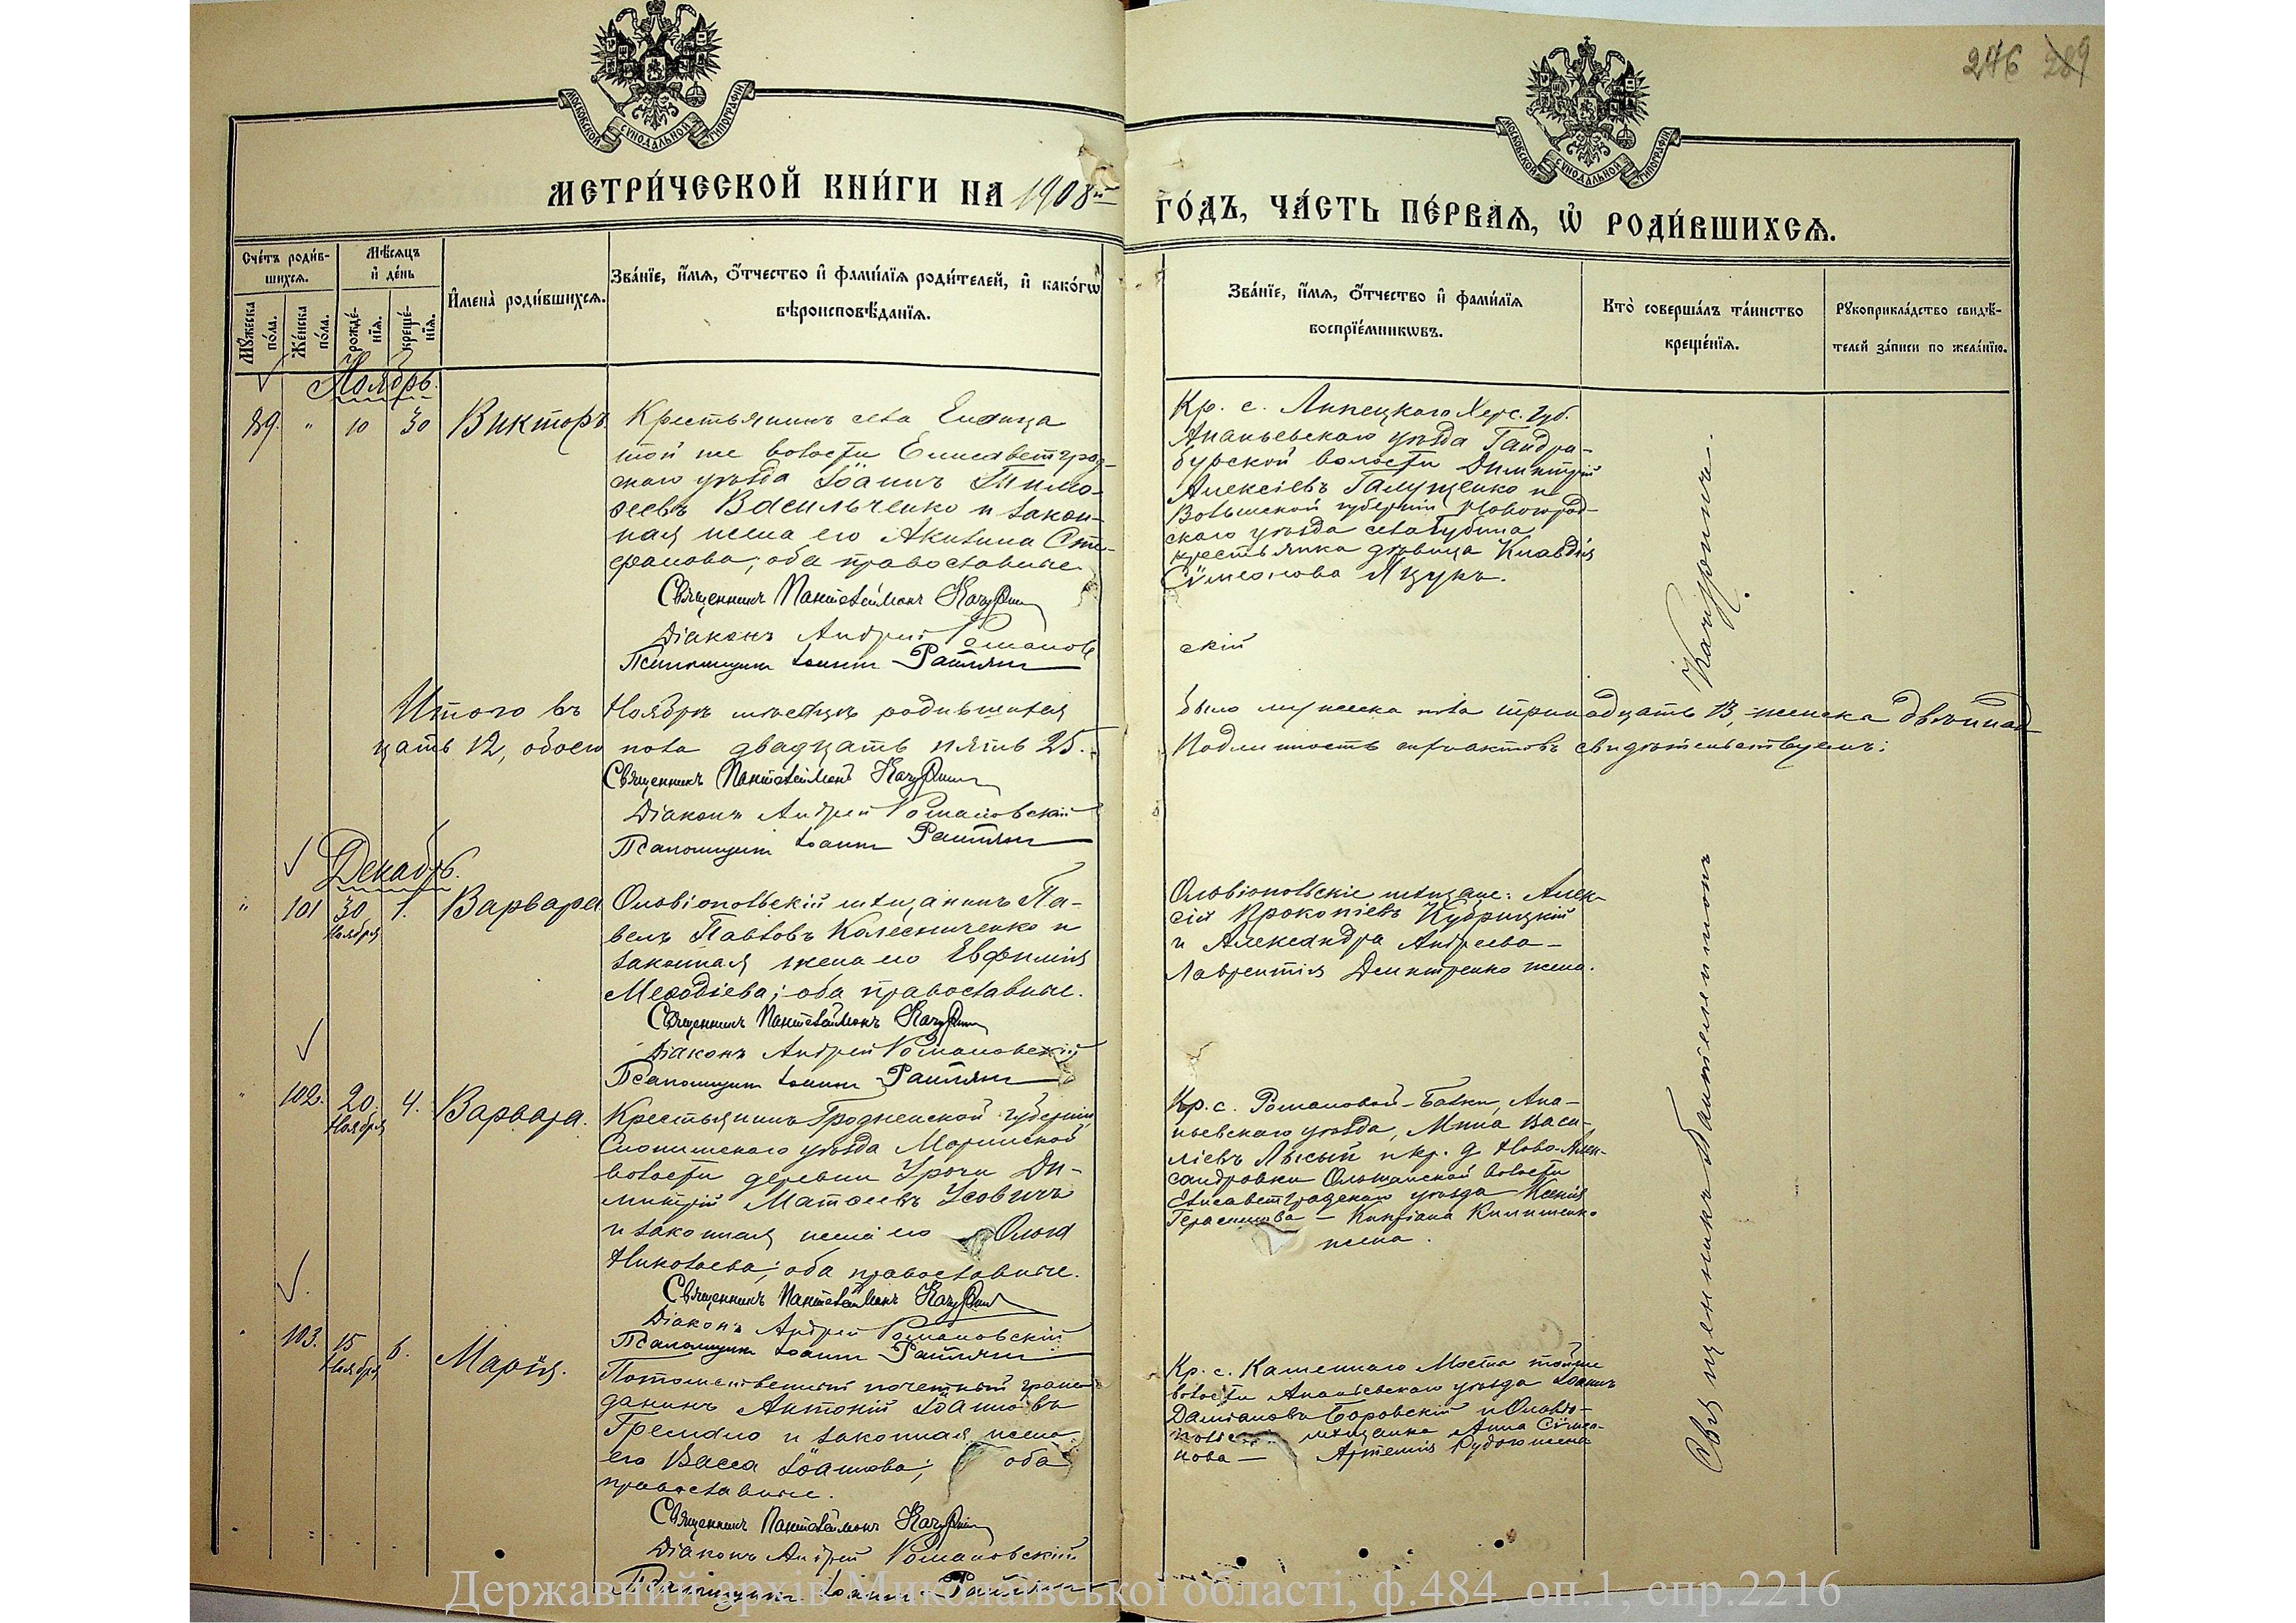 246 289
МОСКОВСКОЙ СѴНОДАЛЬНОЙ ТИПОГРАФІИ
МОСКОВСКОЙ СѴНОДАЛЬНОЙ ТИПОГРАФІИ
МЕТРИ́ЧЕСКОЙ КНИ́ГИ НА 1908й ГО́ДЪ, ЧА́СТЬ ПЕ́РВАѦ, Ѡ РОДИ́ВШИХСѦ.
Сче́тъ роди́в-
шихсѧ.
Мꙋ́жеска по́ла.
Же́нска по́ла.
Мѣ́сѧцъ
и҆ де́нь
рожде́-нїѧ.
креще́-нїѧ.
И҆мена̀ роди́вшихсѧ.
Зва́нїе, и҆́мѧ, ѻ҆́тчество и҆ фами́лїѧ роди́телей, и҆ како́гѡ
вѣроисповѣ́данїѧ.
Зва́нїе, и҆́мѧ, ѻ҆́тчество и҆ фами́лїѧ
воспрїе́мникѡвъ.
Кто̀ соверша́лъ та́инство
креще́нїѧ.
Рꙋкоприкла́дство свидѣ́-
телей за́писи по жела́нїю.
Ноябрь.
89. " 10 30 Викторъ
Крестьянинъ села
той же волости Елисаветград-
скаго уѣзда Іоаннъ Тимо-
ѳеевъ Васильченко и закон-
ная жена его Акилина Сте-
фанова; оба православные.
Священникъ Пантелеймонъ
Діаконъ Андрей Романов
Псаломщикъ Іоаннъ
Кр. с. Липецкаго Херс. губ.
Ананьевскаго уѣзда Гандра-
бурской волости Димитрій
Алексіевъ Галущенко и
Волынской губерніи Новоград-
скаго уѣзда села
крестьянка дѣвица Клавдія
Сѵмеонова Яцукъ.
скій
Итого въ Ноябрѣ мѣсяцѣ родившихся было мужеска пола тринадцать 13, женска двѣнад-
цать 12, обоего пола двадцать пять 25. Подлинность актовъ свидѣтельствуемъ:
Священникъ Пантелеймонъ
Діаконъ Андрей Романовскій
Псаломщикъ Іоаннъ
Декабрь.
" 101 30 Ноября 1. Варвара
Ольвіопольскій мѣщанинъ Па-
велъ Павловъ Колесниченко и
законная жена его Евфимія
Меѳодіева; оба православные.
Священникъ Пантелеймонъ
Діаконъ Андрей Романовскій
Псаломщикъ Іоаннъ
Ольвіопольскіе мѣщане: Алек-
сій Прокопіевъ Кудрицкій
и Александра Андреева —
Лаврентія Дмитренко жена.
" 102. 20 Ноября 4. Варвара.
Крестьянинъ Гродненской губерніи
Слонимскаго уѣзда
волости деревни Ди-
митрій Матѳеевъ Усовичъ
и законная жена его Ольга
Николаева; оба православные.
Священникъ Пантелеймонъ
Діаконъ Андрей Романовскій
Псаломщикъ Іоаннъ
Кр. с. Романовой-Балки, Ана-
ньевскаго уѣзда, Мина Васи-
ліевъ Лысый и кр. д. Ново-Алек-
сандровки Ольшанской волости
Елисаветградскаго уѣзда Ксенія
Герасимова — Кипріана
жена.
" 103. 15 Ноября 6. Марія.
Потомственный почетный граж-
данинъ Антоній Іоанновъ
и законная жена
его Васса Іоаннова; оба
православные.
Священникъ Пантелеймонъ
Діаконъ Андрей Романовскій
Псаломщикъ Іоаннъ
Кр. с. Каменнаго Моста тойже
волости Ананьевскаго уѣзда Іоаннъ
Даміановъ Боровскій и Ольвіо-
мѣщанка Анна Сѵмео-
нова — Артемія жена
Священникъ Пантелеимонъ
Державний архів Миколаївської області, ф.484, оп.1, спр.2216